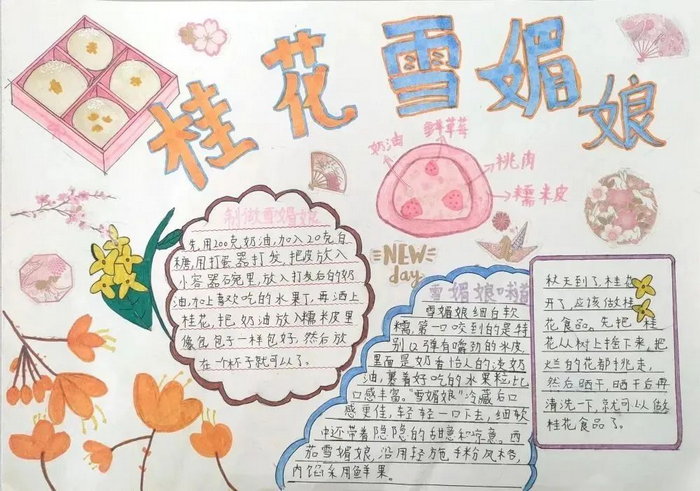 桂花雪媚娘
奶油
鲜草莓
桃肉
糯米皮
NEW
day
制做雪媚娘
先用200克奶油,加入20克白
糖,用打蛋器打发,把皮放入
小容器石碗里,放入打发后的奶
油加上喜欢吃的水果丁,再洒上
桂花,把奶油放入糯米皮里
像包包子一样包好,然后放
在一个杯子就可以了。
雪媚娘
雪媚娘细白软
糯,第一口咬到的是特
别Q弹有嚼劲的冰皮,
里面是奶香怡人的淡奶
油,裹着好吃的水果粒比
口感丰富。“雪媚娘”冷藏后口
感更佳,轻轻一口下去,细软
中还带着隐隐的甜意和凉意。西
茄雪媚娘,沿用轻施手粉风格,
内馅采用鲜果。
秋天到了,桂
开了,应该做桂
花食品。先把桂
花从树上拾下来,把
烂的花都挑走,
然后晒干,晒干后再
清洗一下,就可以做
桂花食品了。